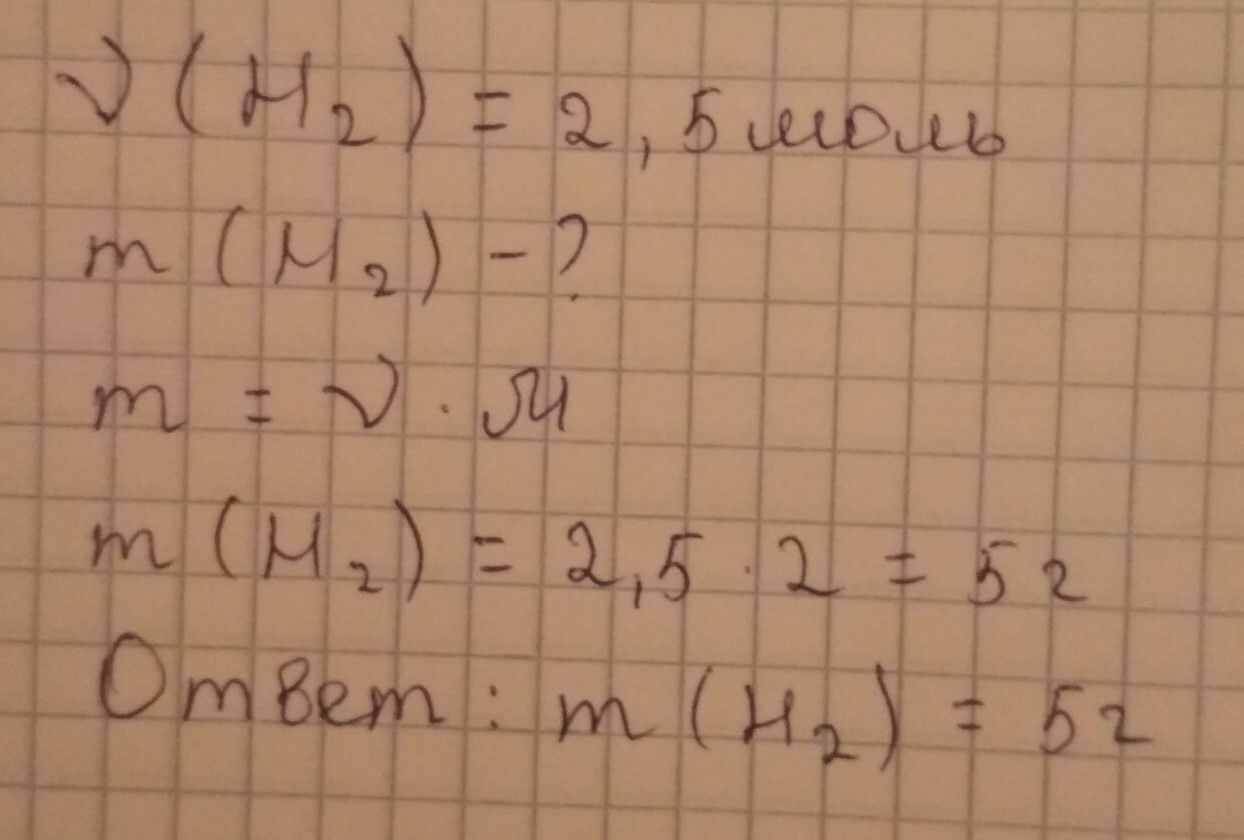 ν(H₂) = 2,5 моль
m (H₂) - ?
m = ν · M
m (H₂) = 2,5 · 2 = 5 г
Ответ: m (H₂) = 5г